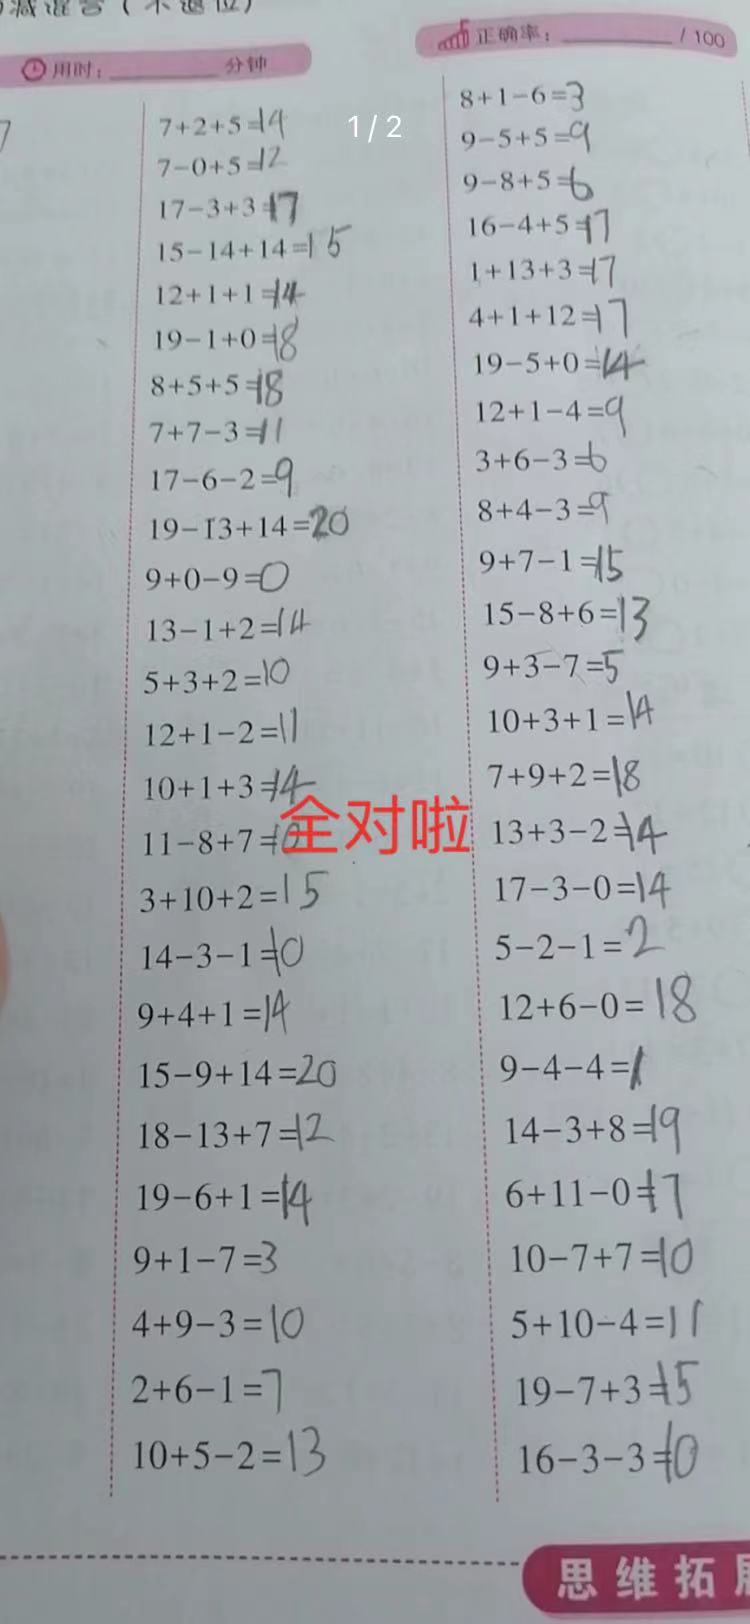 用时：________分钟
正确率：________/100
1/2
7
7+2+5=14
7-0+5=12
17-3+3=17
15-14+14=15
12+1+1=14
19-1+0=18
8+5+5=18
7+7-3=11
17-6-2=9
19-13+14=20
9+0-9=0
13-1+2=14
5+3+2=10
12+1-2=11
10+1+3=14
11-8+7=10
3+10+2=15
14-3-1=10
9+4+1=14
15-9+14=20
18-13+7=12
19-6+1=14
9+1-7=3
4+9-3=10
2+6-1=7
10+5-2=13
8+1-6=3
9-5+5=9
9-8+5=6
16-4+5=17
1+13+3=17
4+1+12=17
19-5+0=14
12+1-4=9
3+6-3=6
8+4-3=9
9+7-1=15
15-8+6=13
9+3-7=5
10+3+1=14
7+9+2=18
13+3-2=14
17-3-0=14
5-2-1=2
12+6-0=18
9-4-4=1
14-3+8=19
6+11-0=17
10-7+7=10
5+10-4=11
19-7+3=15
16-3-3=10
全对啦
思维拓展